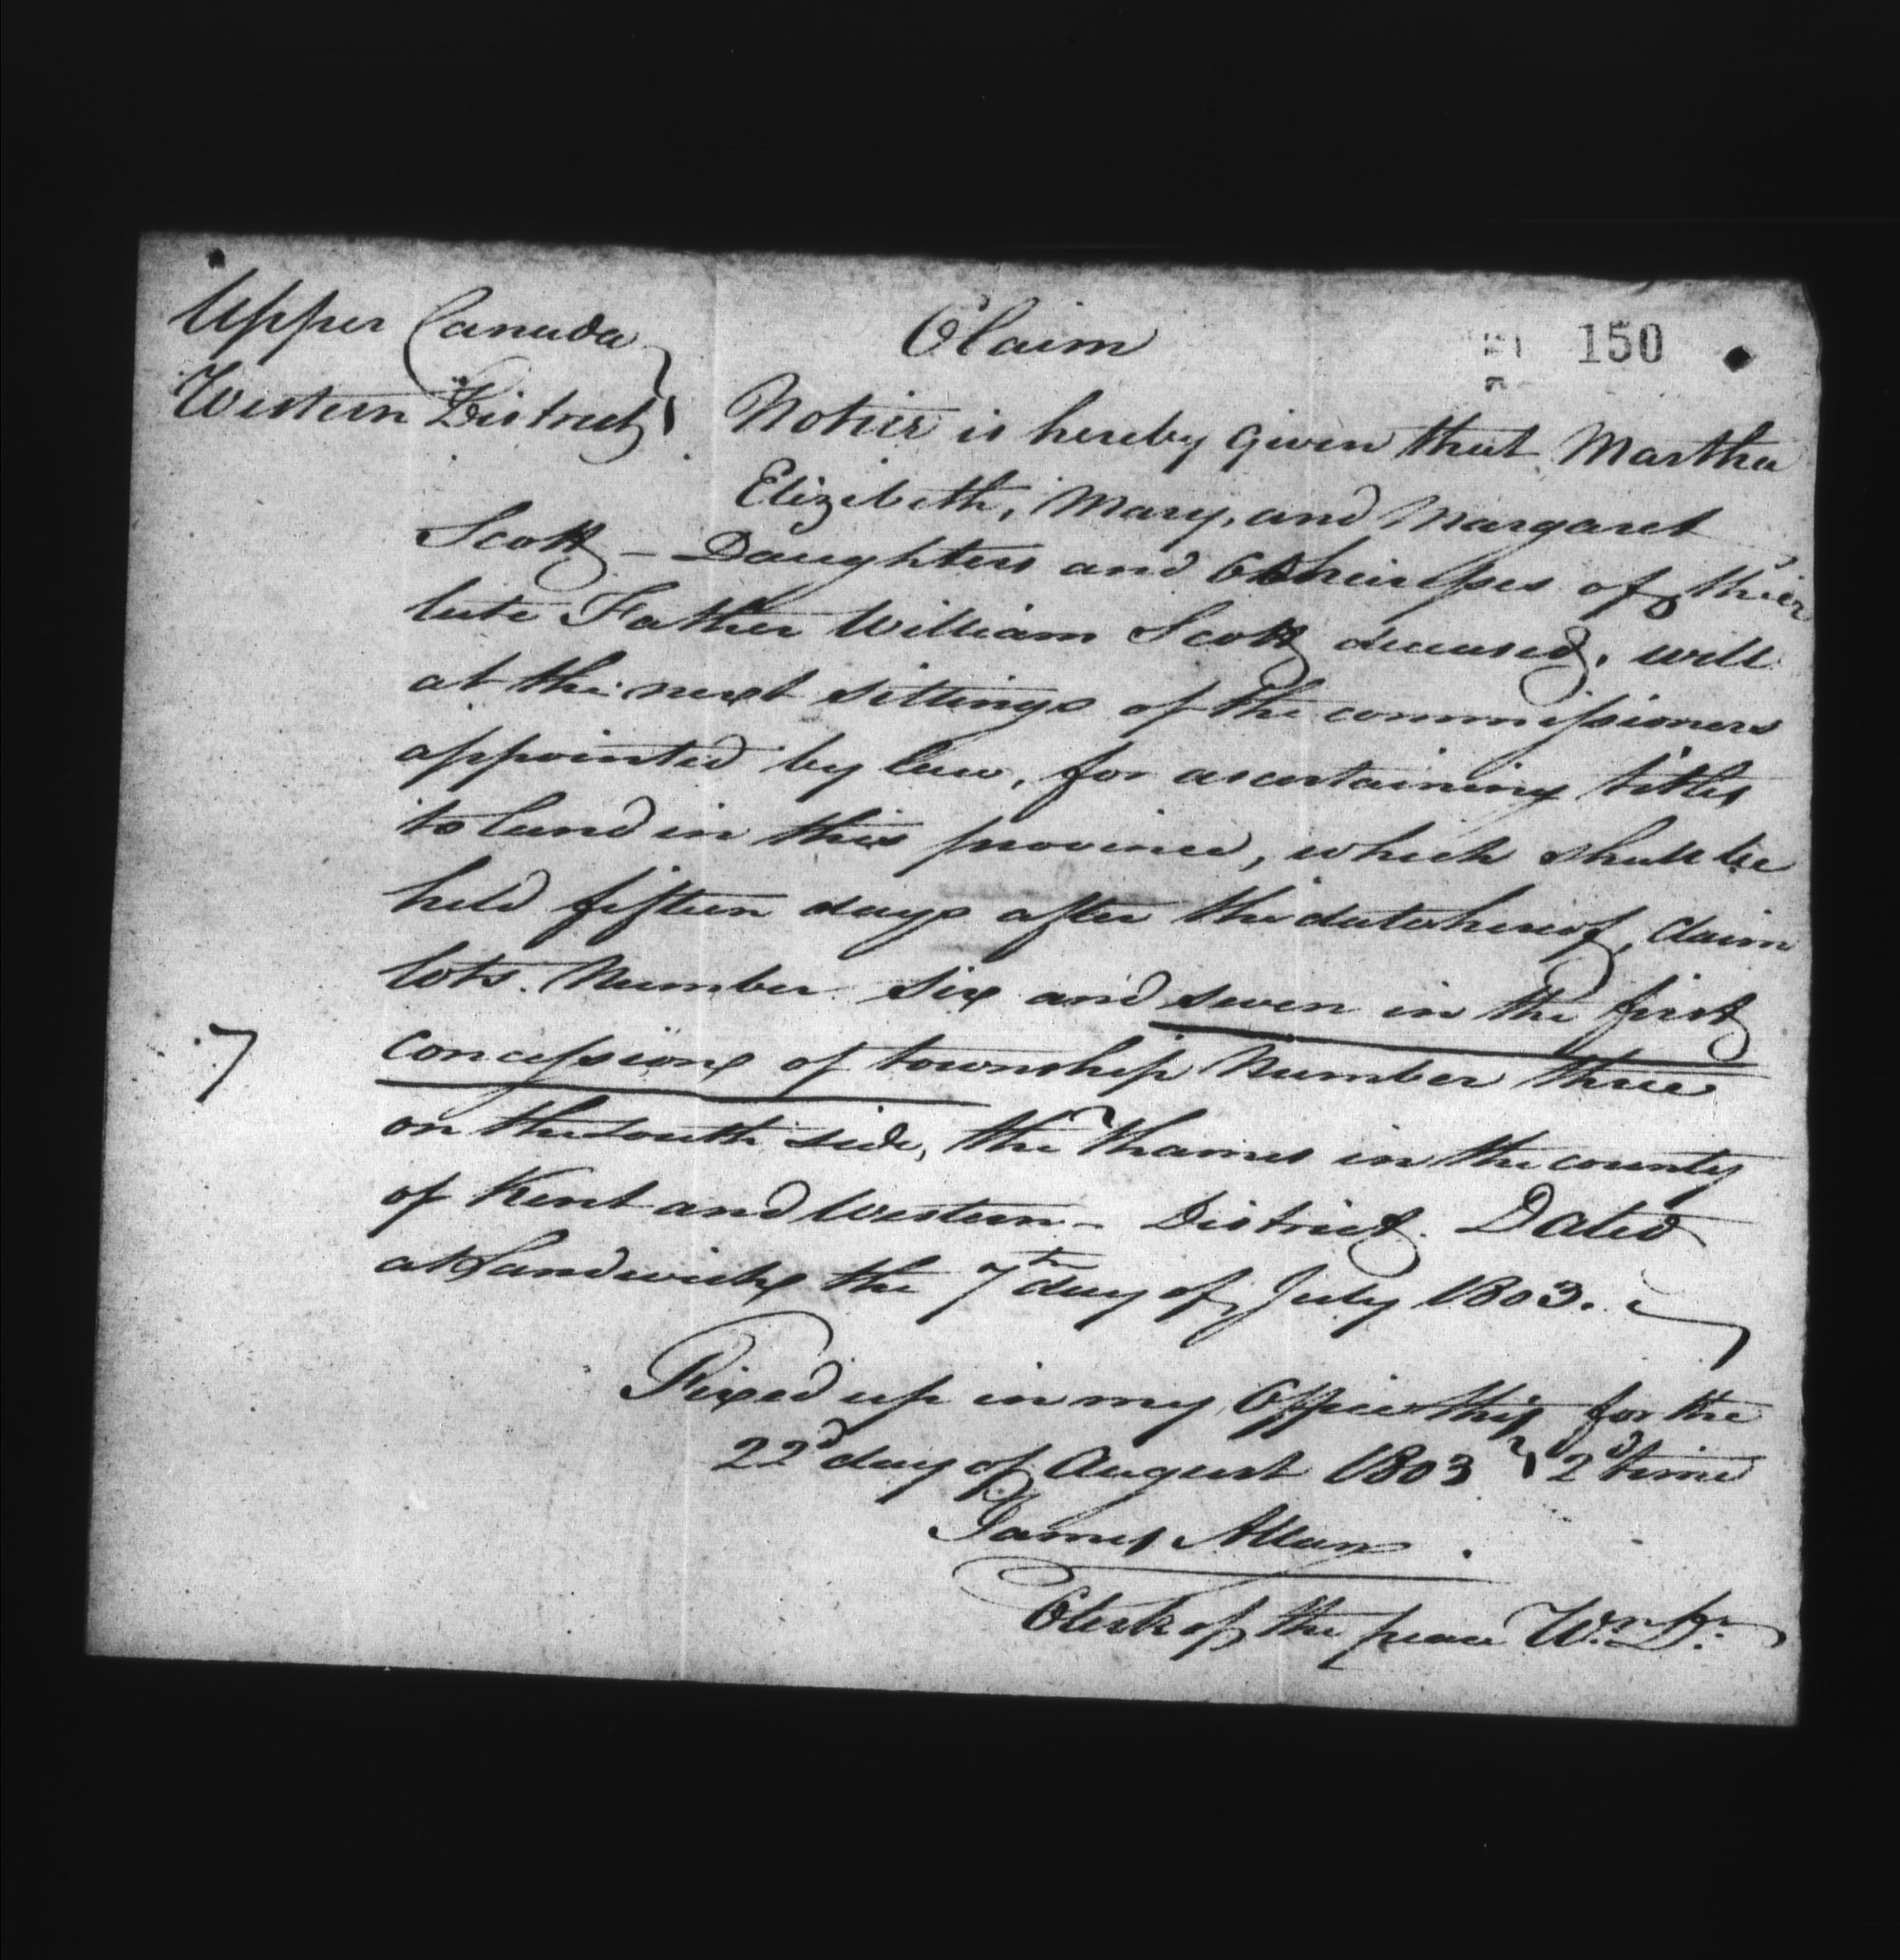 Upper Canada
Western District
Claim
150
Notice is hereby given that Martha
Elizibeth, Mary, and Margaret
Scott – Daughters and Coheiresses of thier
late Father William Scott deceased, will
at the next sittings of the commissioners
appointed by law, for ascertaining titles
to land in this province, which shall be
held fifteen days after the date hereof, claim
lots. Number six and seven in the first
concession of township Number three
7
on the south side, the Thames in the county
of Kent and Western – District. Dated
at Sandwich the 7th day of July 1803.
Fixed up in my Office this for the
22d day of August 1803 2d time
James Allan
Clerk of the peace Wn. Dt.